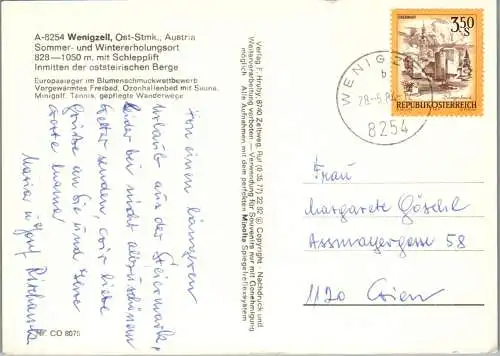 A-8254 Wenigzell, Ost-Stmk., Austria
Sommer- und Wintererholungsort
828—1050 m. mit Schlepplift
Inmitten der oststeirischen Berge
Europasieger im Blumenschmuckwettbewerb
Vorgewärmtes Freibad, Ozonhallenbad mit Sauna,
Minigolf, Tennis, gepflegte Wanderwege
Von einem längeren
Urlaub aus der Steiermark,
leider bei nicht allzu schönem
Wetter senden wir liebe
Grüße an Sie und Ihre
Mama!
Maria u. Josef
CO 8075
Verlag F. Hruby, 8740 Zeltweg, Ruf (0 35 77) 22 82 © Copyright - Nachdruck und
Weiterverarbeitung verboten — Verwendung für Souvenirs nur mit Genehmigung
möglich. Alle Aufnahmen mit dem perfekten Minolta Spiegelreflexsystem
WENIGZELL
b
8254
3,50
S
REPUBLIK ÖSTERREICH
Frau
Margarete Göschl
Assmayergasse 58
1120 Wien